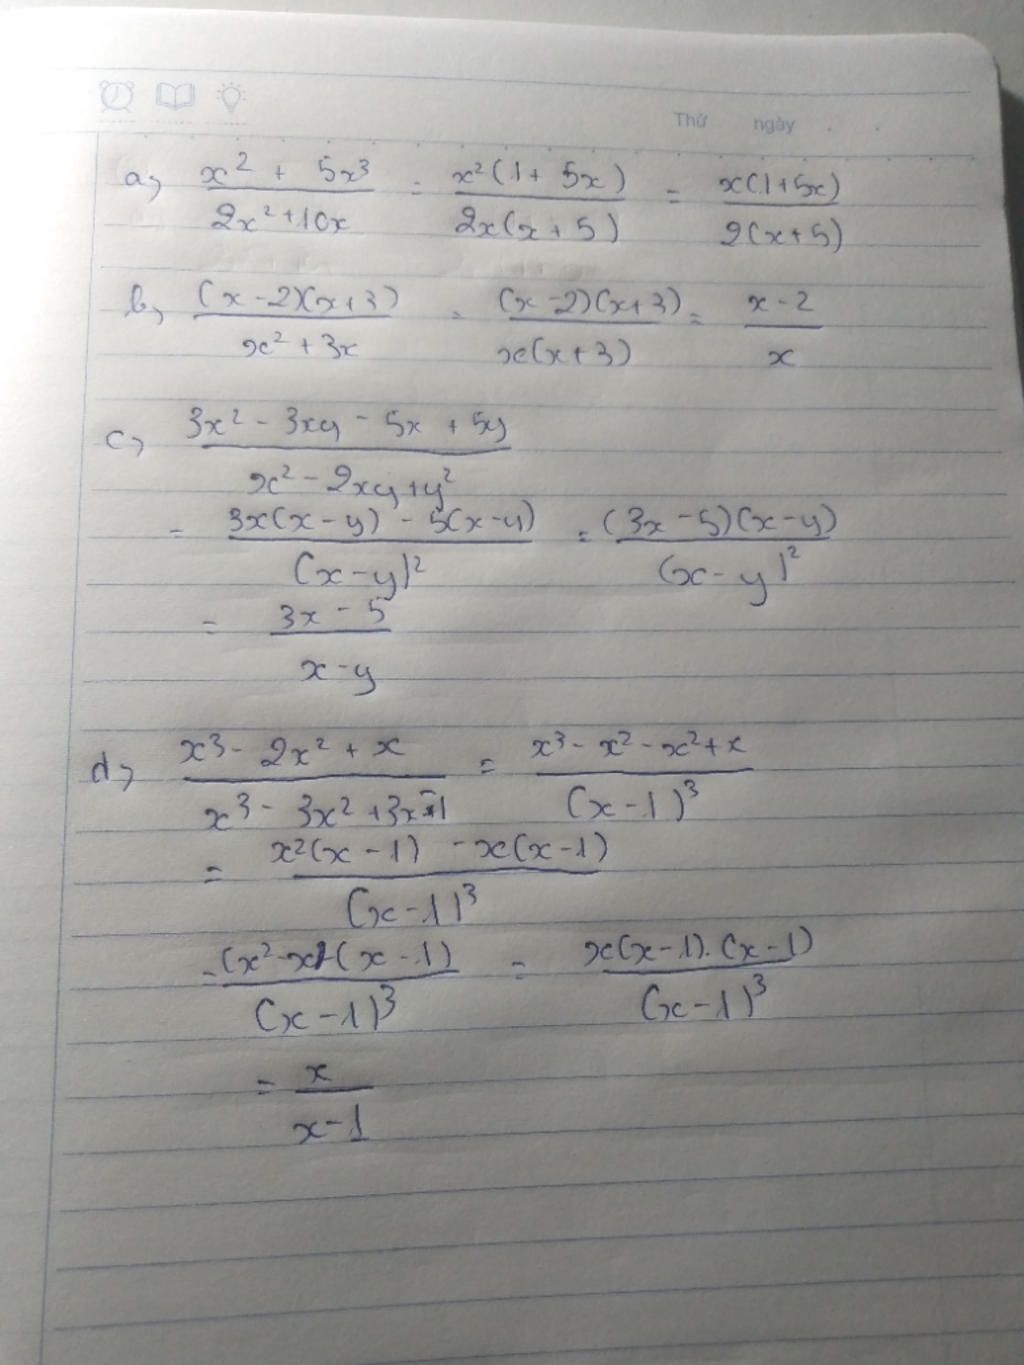 Thứ ngày
a, x² + 5x³ / 2x² + 10x = x²(1 + 5x) / 2x(x + 5) = x(1 + 5x) / 2(x + 5)
b, (x - 2)(x + 3) / x² + 3x = (x - 2)(x + 3) / x(x + 3) = x - 2 / x
c, 3x² - 3xy - 5x + 5y / x² - 2xy + y²
= 3x(x - y) - 5(x - y) / (x - y)² = (3x - 5)(x - y) / (x - y)²
= 3x - 5 / x - y
d, x³ - 2x² + x / x³ - 3x² + 3x - 1 = x³ - x² - x² + x / (x - 1)³
= x²(x - 1) - x(x - 1) / (x - 1)³
= (x² - x)(x - 1) / (x - 1)³ = x(x - 1).(x - 1) / (x - 1)³
= x / x - 1